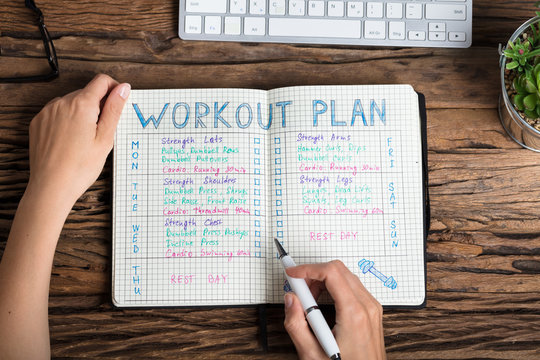 WORKOUT PLAN
MON
Strength Lats
Pullups, Dumbbell Rows
Dumbbell Pullovers
Cardio: Running 30 min
TUE
Strength Shoulders
Dumbbell Press
Side Raise, Front Raise
Cardio: Threadmill
WED
Strength Chest
Dumbbell Press, Pushups
Incline Press
Cardio: Swimming
THU
REST DAY
FRI
Strength Arms
Hammer Curls, Dips
Dumbbell Curls
Cardio: Running 30min
SAT
Strength Legs
Squats, Leg Curls
Cardio: Swimming
SUN
REST DAY